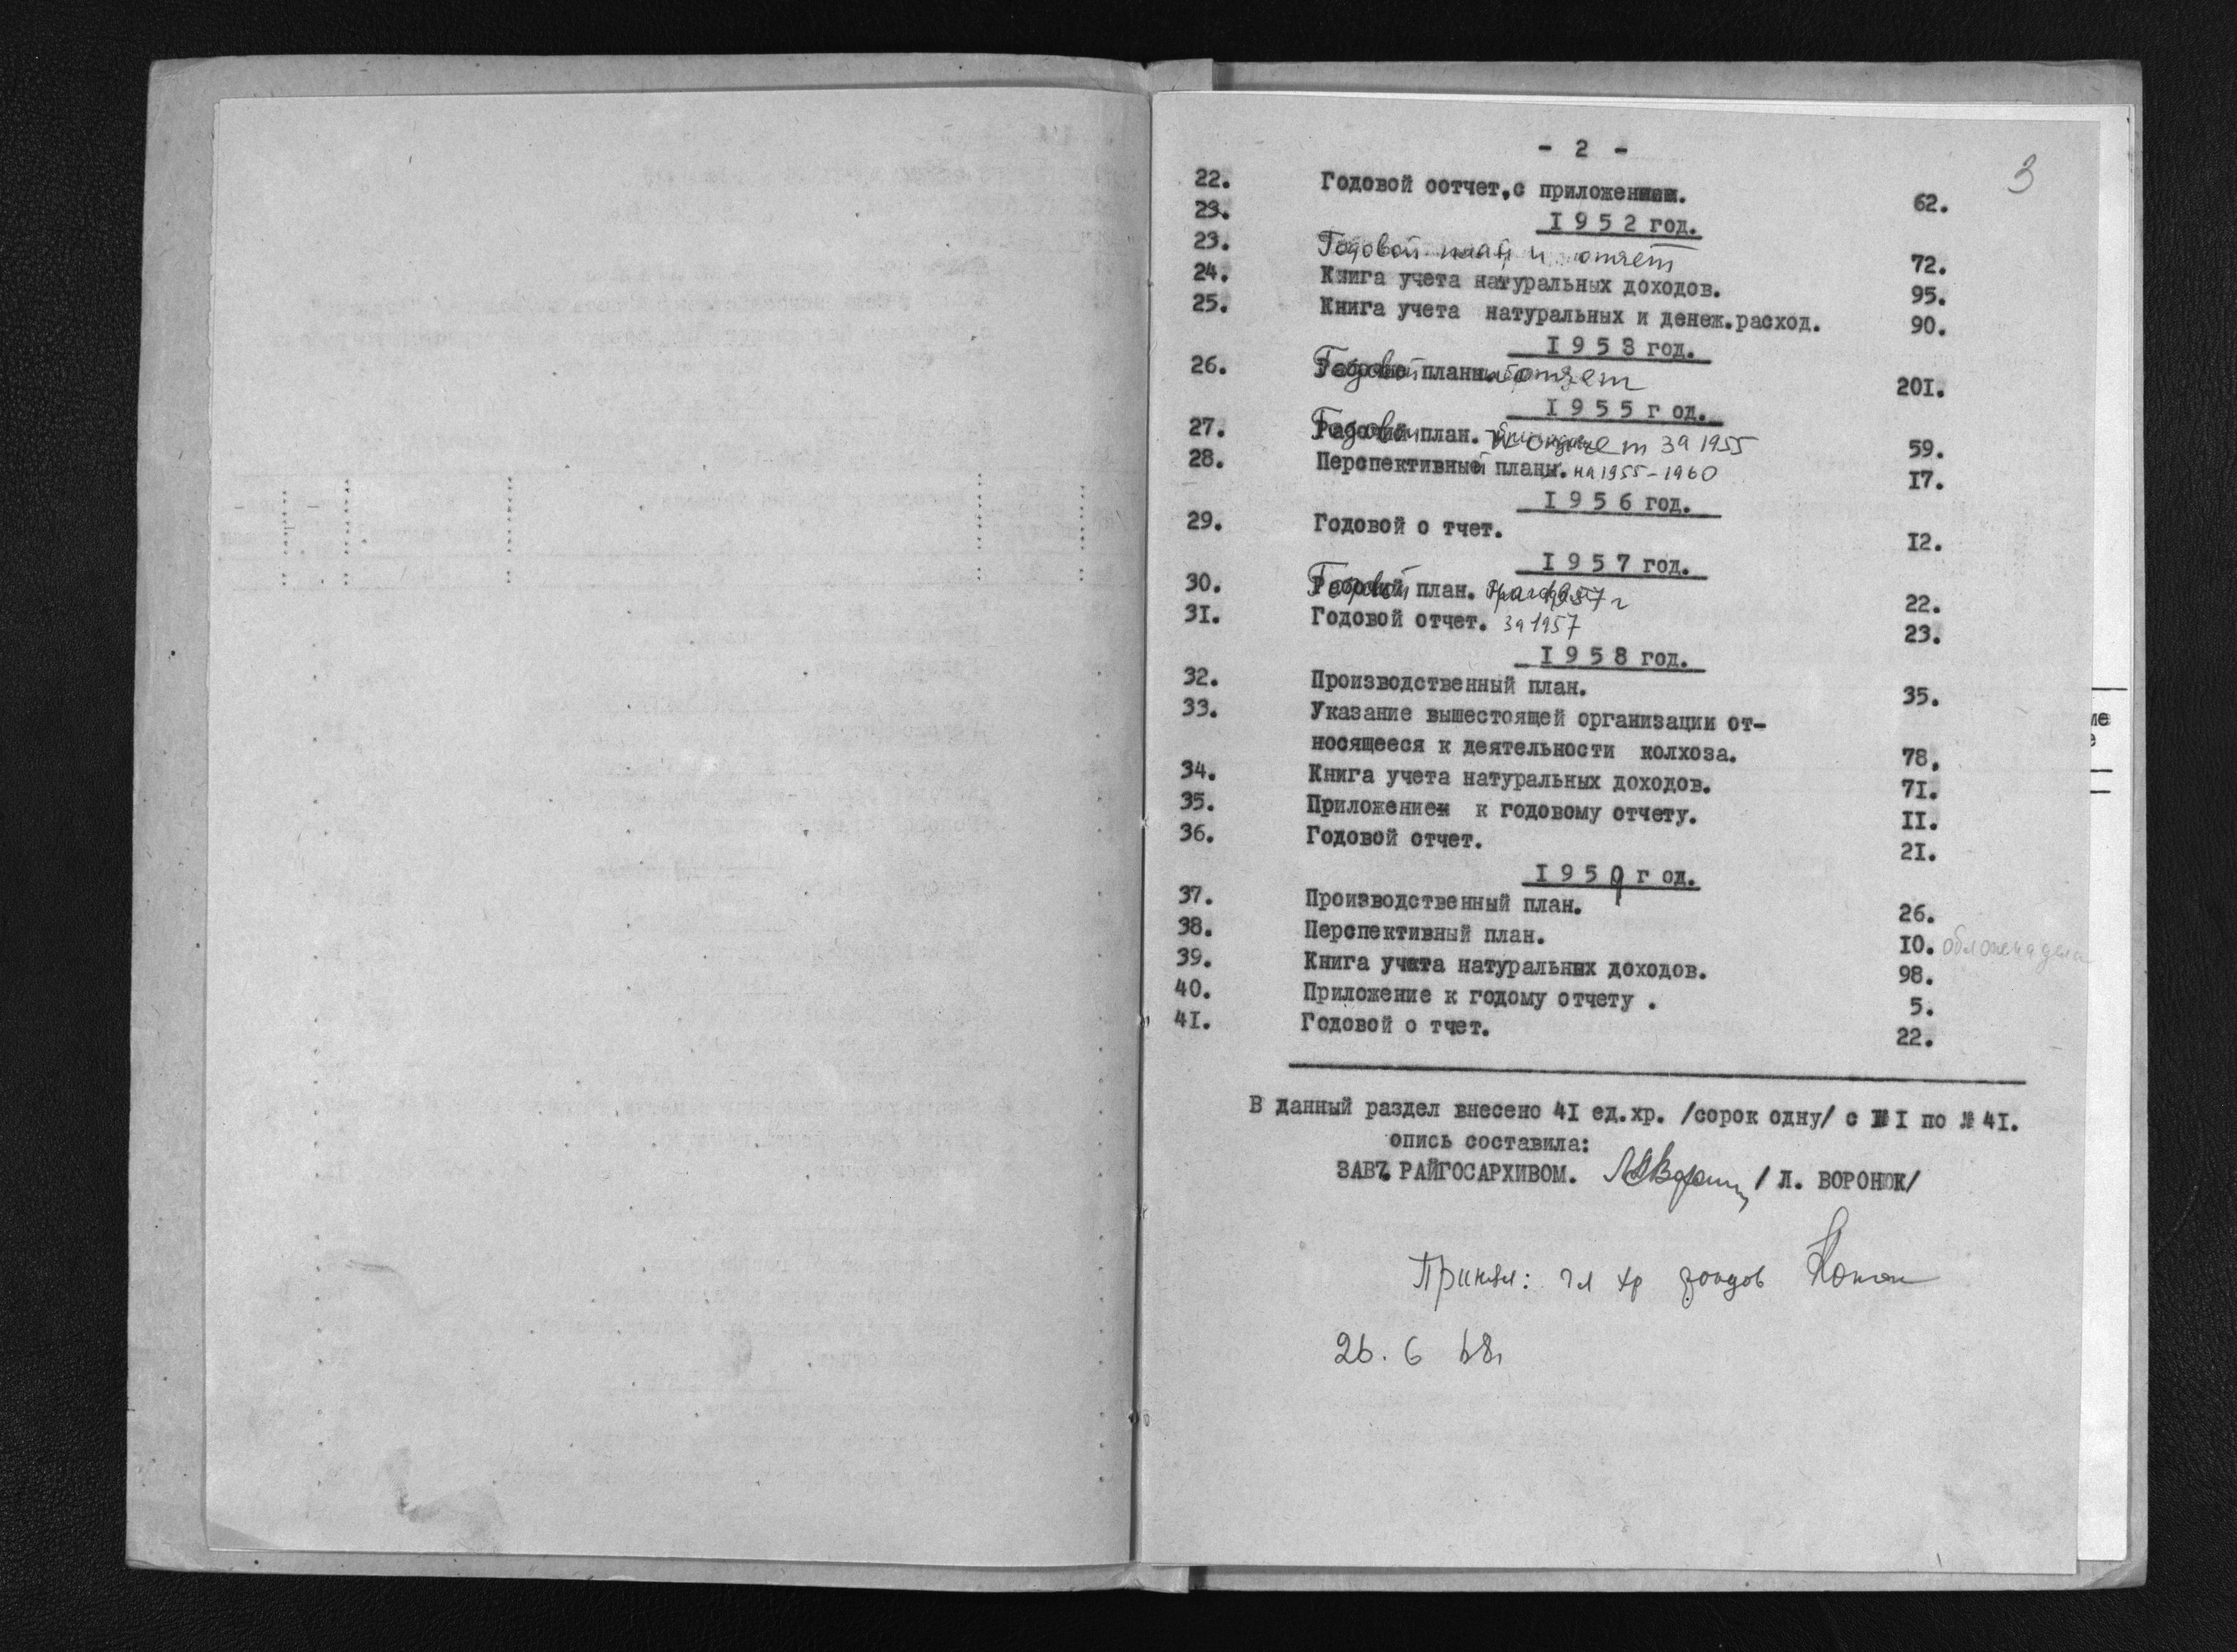 - 2 -
3
22. Годовой оотчет,с приложением. 62.
23. 1 9 5 2 год.
23. Годовой план и отчет 72.
24. Книга учета натуральных доходов. 95.
25. Книга учета натуральных и денеж.расход. 90.
I 9 5 3 год.
26. Годовой план и отчет 201.
I 9 5 5 г од.
27. Годовой план. и отчет за 1955 59.
28. Перспективный план. на 1955-1960 I7.
I 9 5 6 год.
29. Годовой о тчет. I2.
I 9 5 7 год.
30. Годовой план. 1957 г 22.
3I. Годовой отчет. за 1957 23.
I 9 5 8 год.
32. Производственный план. 35.
33. Указание вышестоящей организации от-
носящееся к деятельности колхоза. 78.
34. Книга учета натуральных доходов. 7I.
35. Приложение к годовому отчету. II.
36. Годовой отчет. 2I.
I 9 5 9 г од.
37. Производственный план. 26.
38. Перспективный план. I0.
39. Книга учета натуральных доходов. 98.
40. Приложение к годому отчету . 5.
4I. Годовой о тчет. 22.
В данный раздел внесено 4I ед.хр. /сорок одну/ с №I по № 4I.
опись составила:
ЗАВ. РАЙГОСАРХИВОМ. / Л. ВОРОНЮК/
Принял: гл хр фондов
26. 6 68г